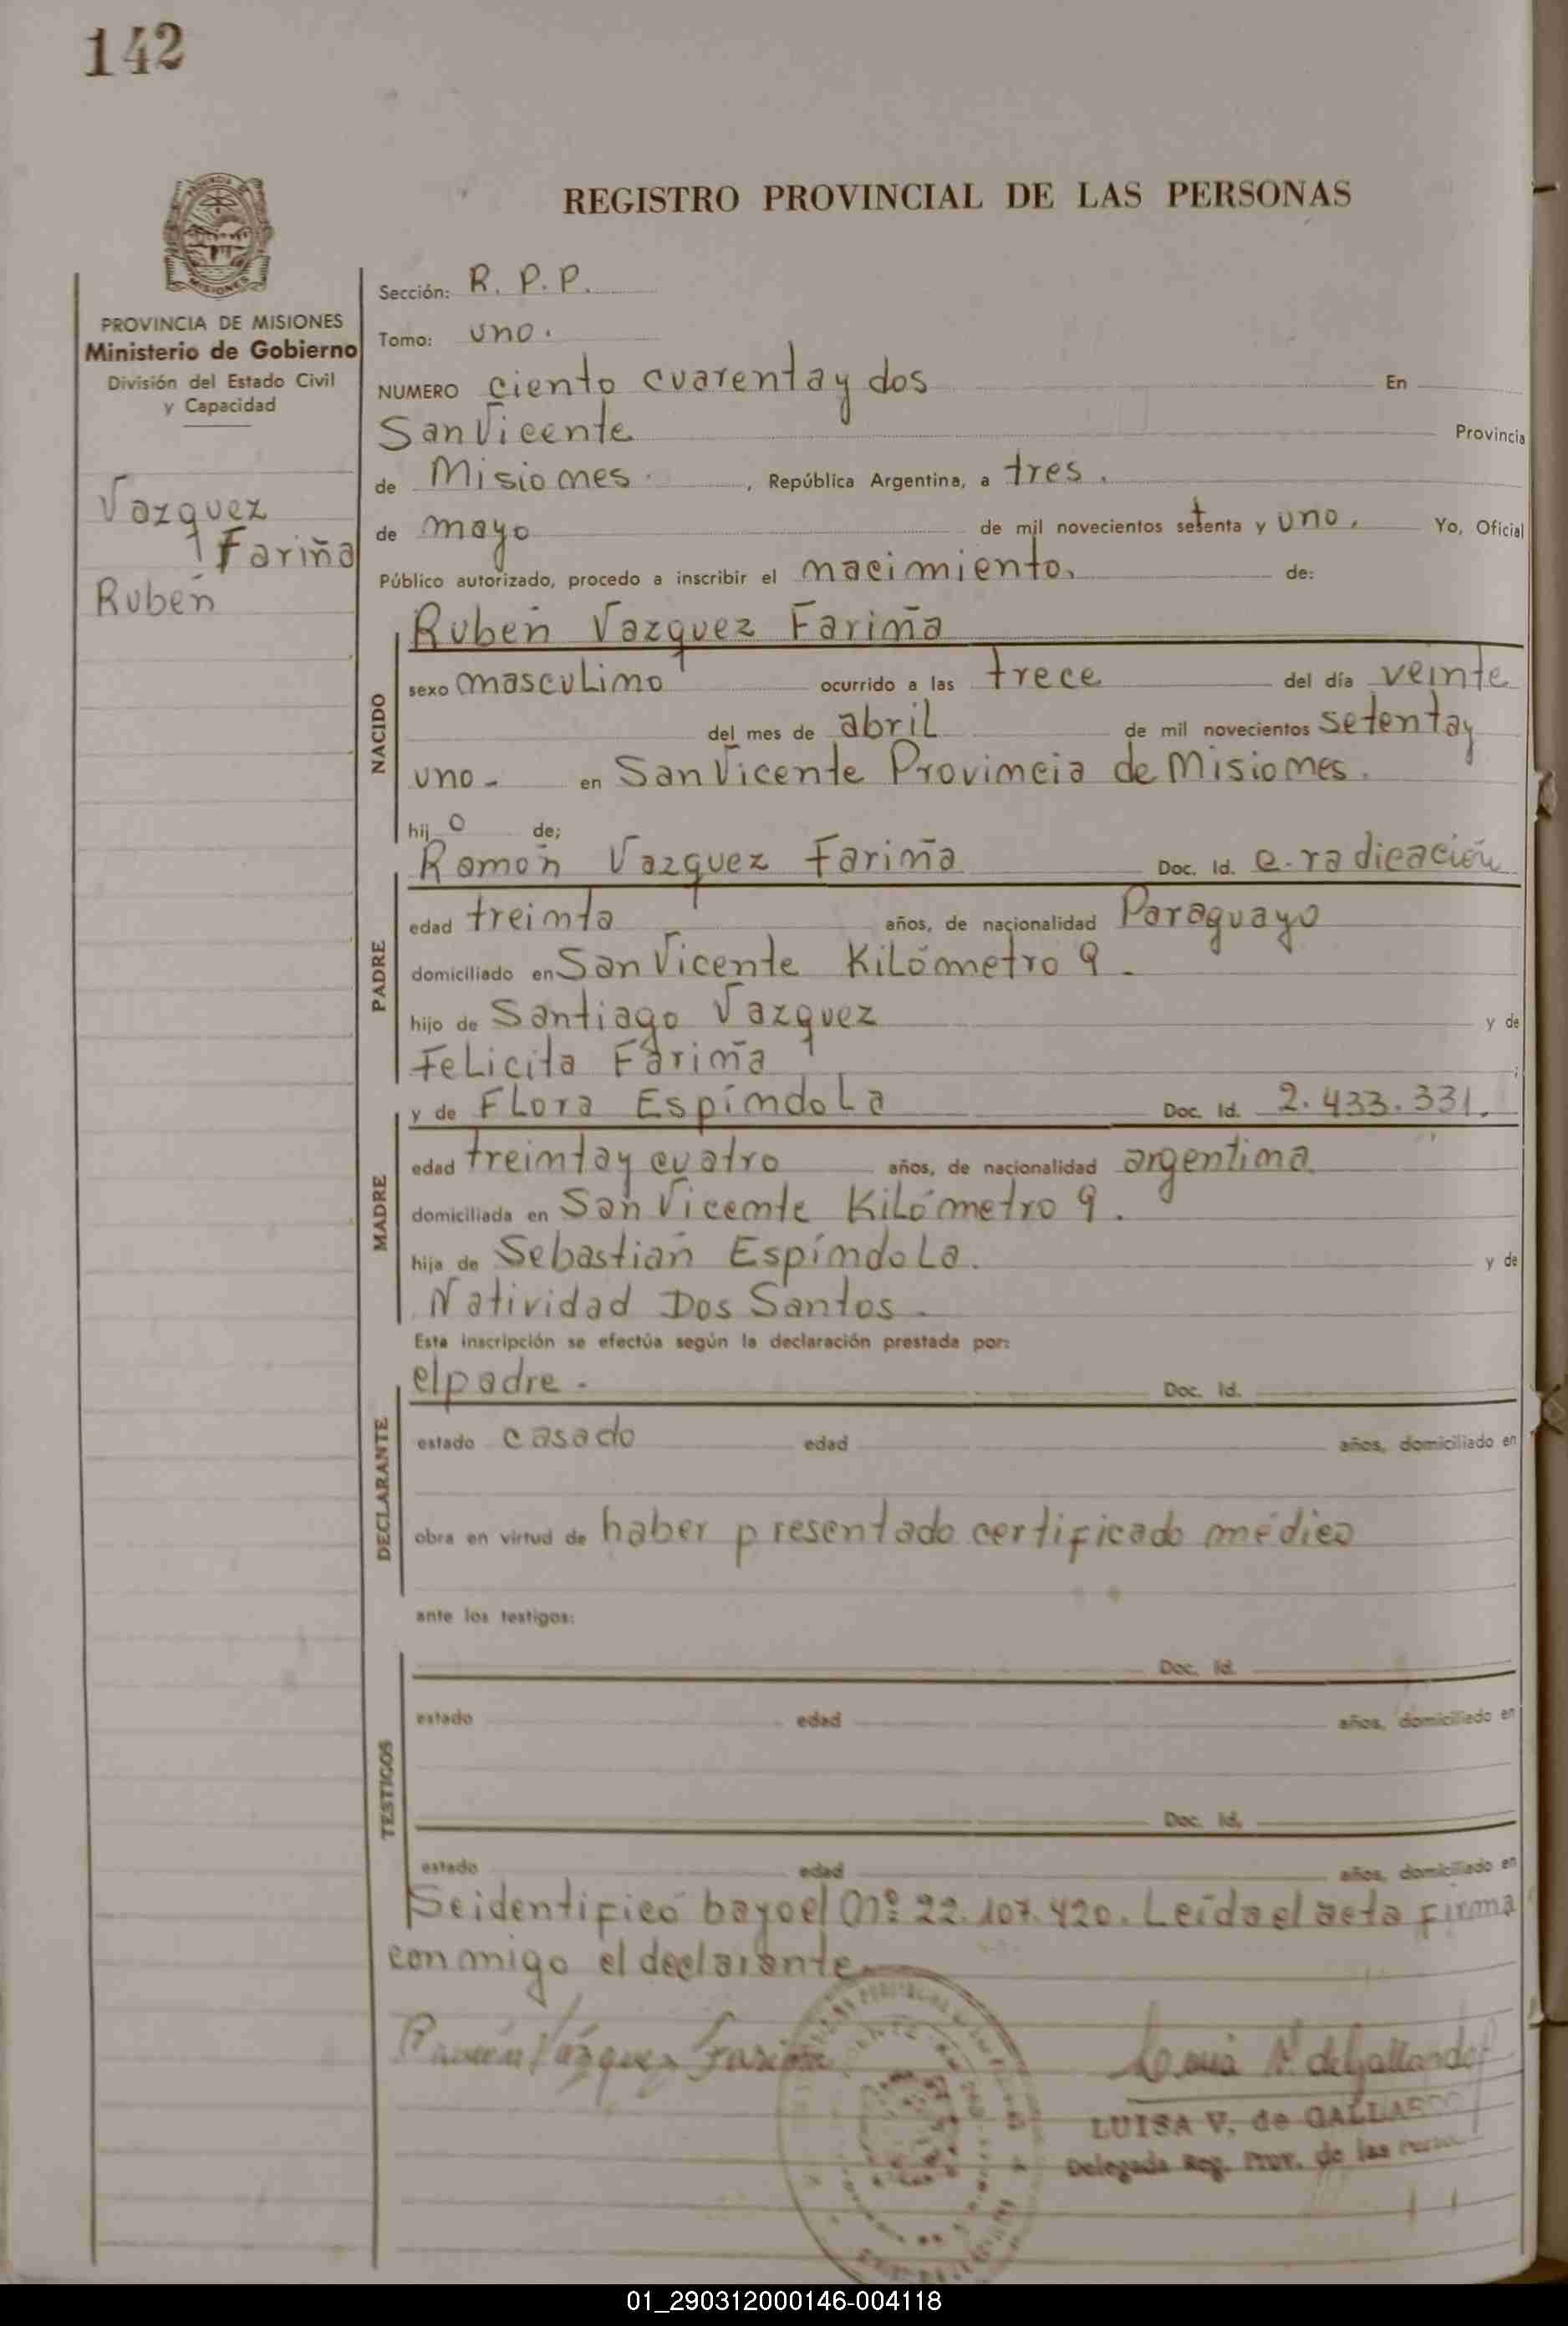 142
REGISTRO PROVINCIAL DE LAS PERSONAS
PROVINCIA DE MISIONES
Ministerio de Gobierno
División del Estado Civil
y Capacidad
Vazquez
Fariña
Rubén
Sección: R. P. P.
Tomo: uno.
NUMERO ciento cuarentay dos En
San Vicente Provincia
de Misiones. , República Argentina, a tres.
de mayo de mil novecientos setenta y uno. Yo, Oficial
Público autorizado, procedo a inscribir el nacimiento. de:
NACIDO
Rubén Vazquez Fariña
sexo masculino ocurrido a las trece del día veinte
del mes de abril de mil novecientos setentay
uno - en San Vicente Provincia de Misiones.
hij o de;
PADRE
Ramón Vazquez Fariña Doc. Id. c. radicación
edad treinta años, de nacionalidad Paraguayo
domiciliado en San Vicente Kilómetro 9 -
hijo de Santiago Vazquez y de
Felicita Fariña ;
MADRE
y de Flora Espíndola Doc. Id. 2.433.331.
edad treintay cuatro años, de nacionalidad argentina
domiciliada en San Vicente Kilómetro 9 .
hija de Sebastián Espíndola. y de
Natividad Dos Santos -
Esta inscripción se efectúa según la declaración prestada por:
DECLARANTE
el padre - Doc. Id.
estado casado edad años, domiciliado en
obra en virtud de haber presentado certificado médico
ante los testigos:
TESTIGOS
Doc. Id.
estado edad años, domiciliado en
Doc. Id.
estado edad años, domiciliado en
Seidentificó bayoel Nº 22.107.420. Leída el acta firma
conmigo el declarante
Ramón Vázquez Fariña
Luisa V. de Gallardo
LUISA V. de GALLARDO
Delegada Reg. Prov. de las
01_290312000146-004118